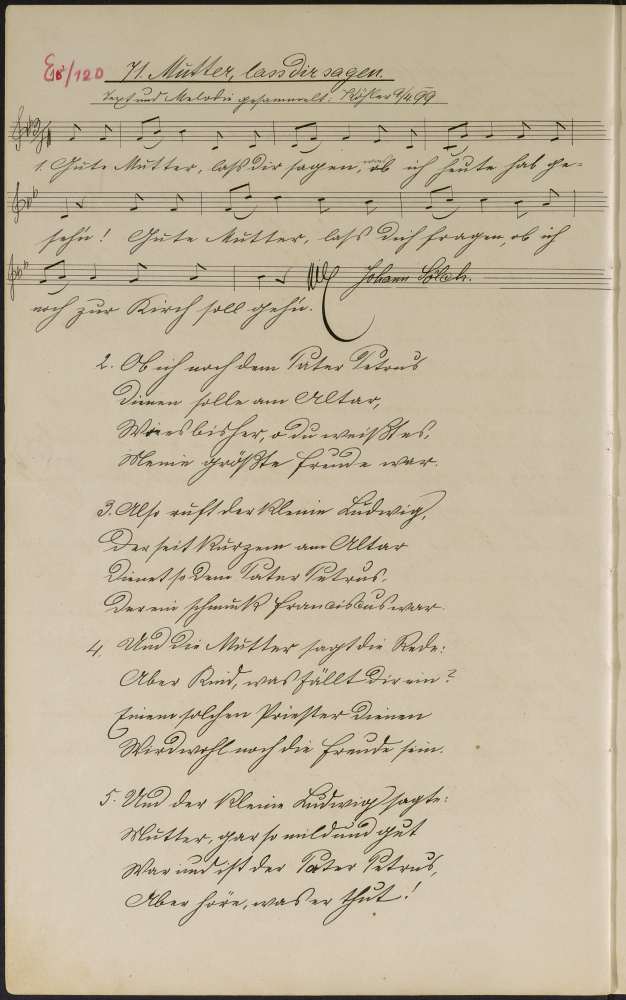 E8/120 71. Mutter, lass dir sagen.
Text und Melodie gesammelt: Köhler 9/4 99
1. Gute Mutter, lass dir sagen, was ich heute hab ge-
sehn! Gute Mutter, lass dich fragen, ob ich
noch zur Kirch soll gehn. Johann
2. Ob ich noch dem Pater Petrus
Dienen solle am Altar,
Wie es bisher, o du weißt es,
Meine größte Freude war.
3. Also ruft der kleine Ludwig,
Der seit Kurzem am Altar
Dienet so dem Pater Petrus,
Der ein schmuk Franciscus war.
4. Und die Mutter sagt die Rede:
Aber Kind, was fällt dir ein?
Einem solchen Priester dienen
Wird wohl noch die Freude sein.
5. Und der kleine Ludwig sagte:
Mutter, gar so mild und gut
War und ist der Pater Petrus,
Aber höre, was er thut!